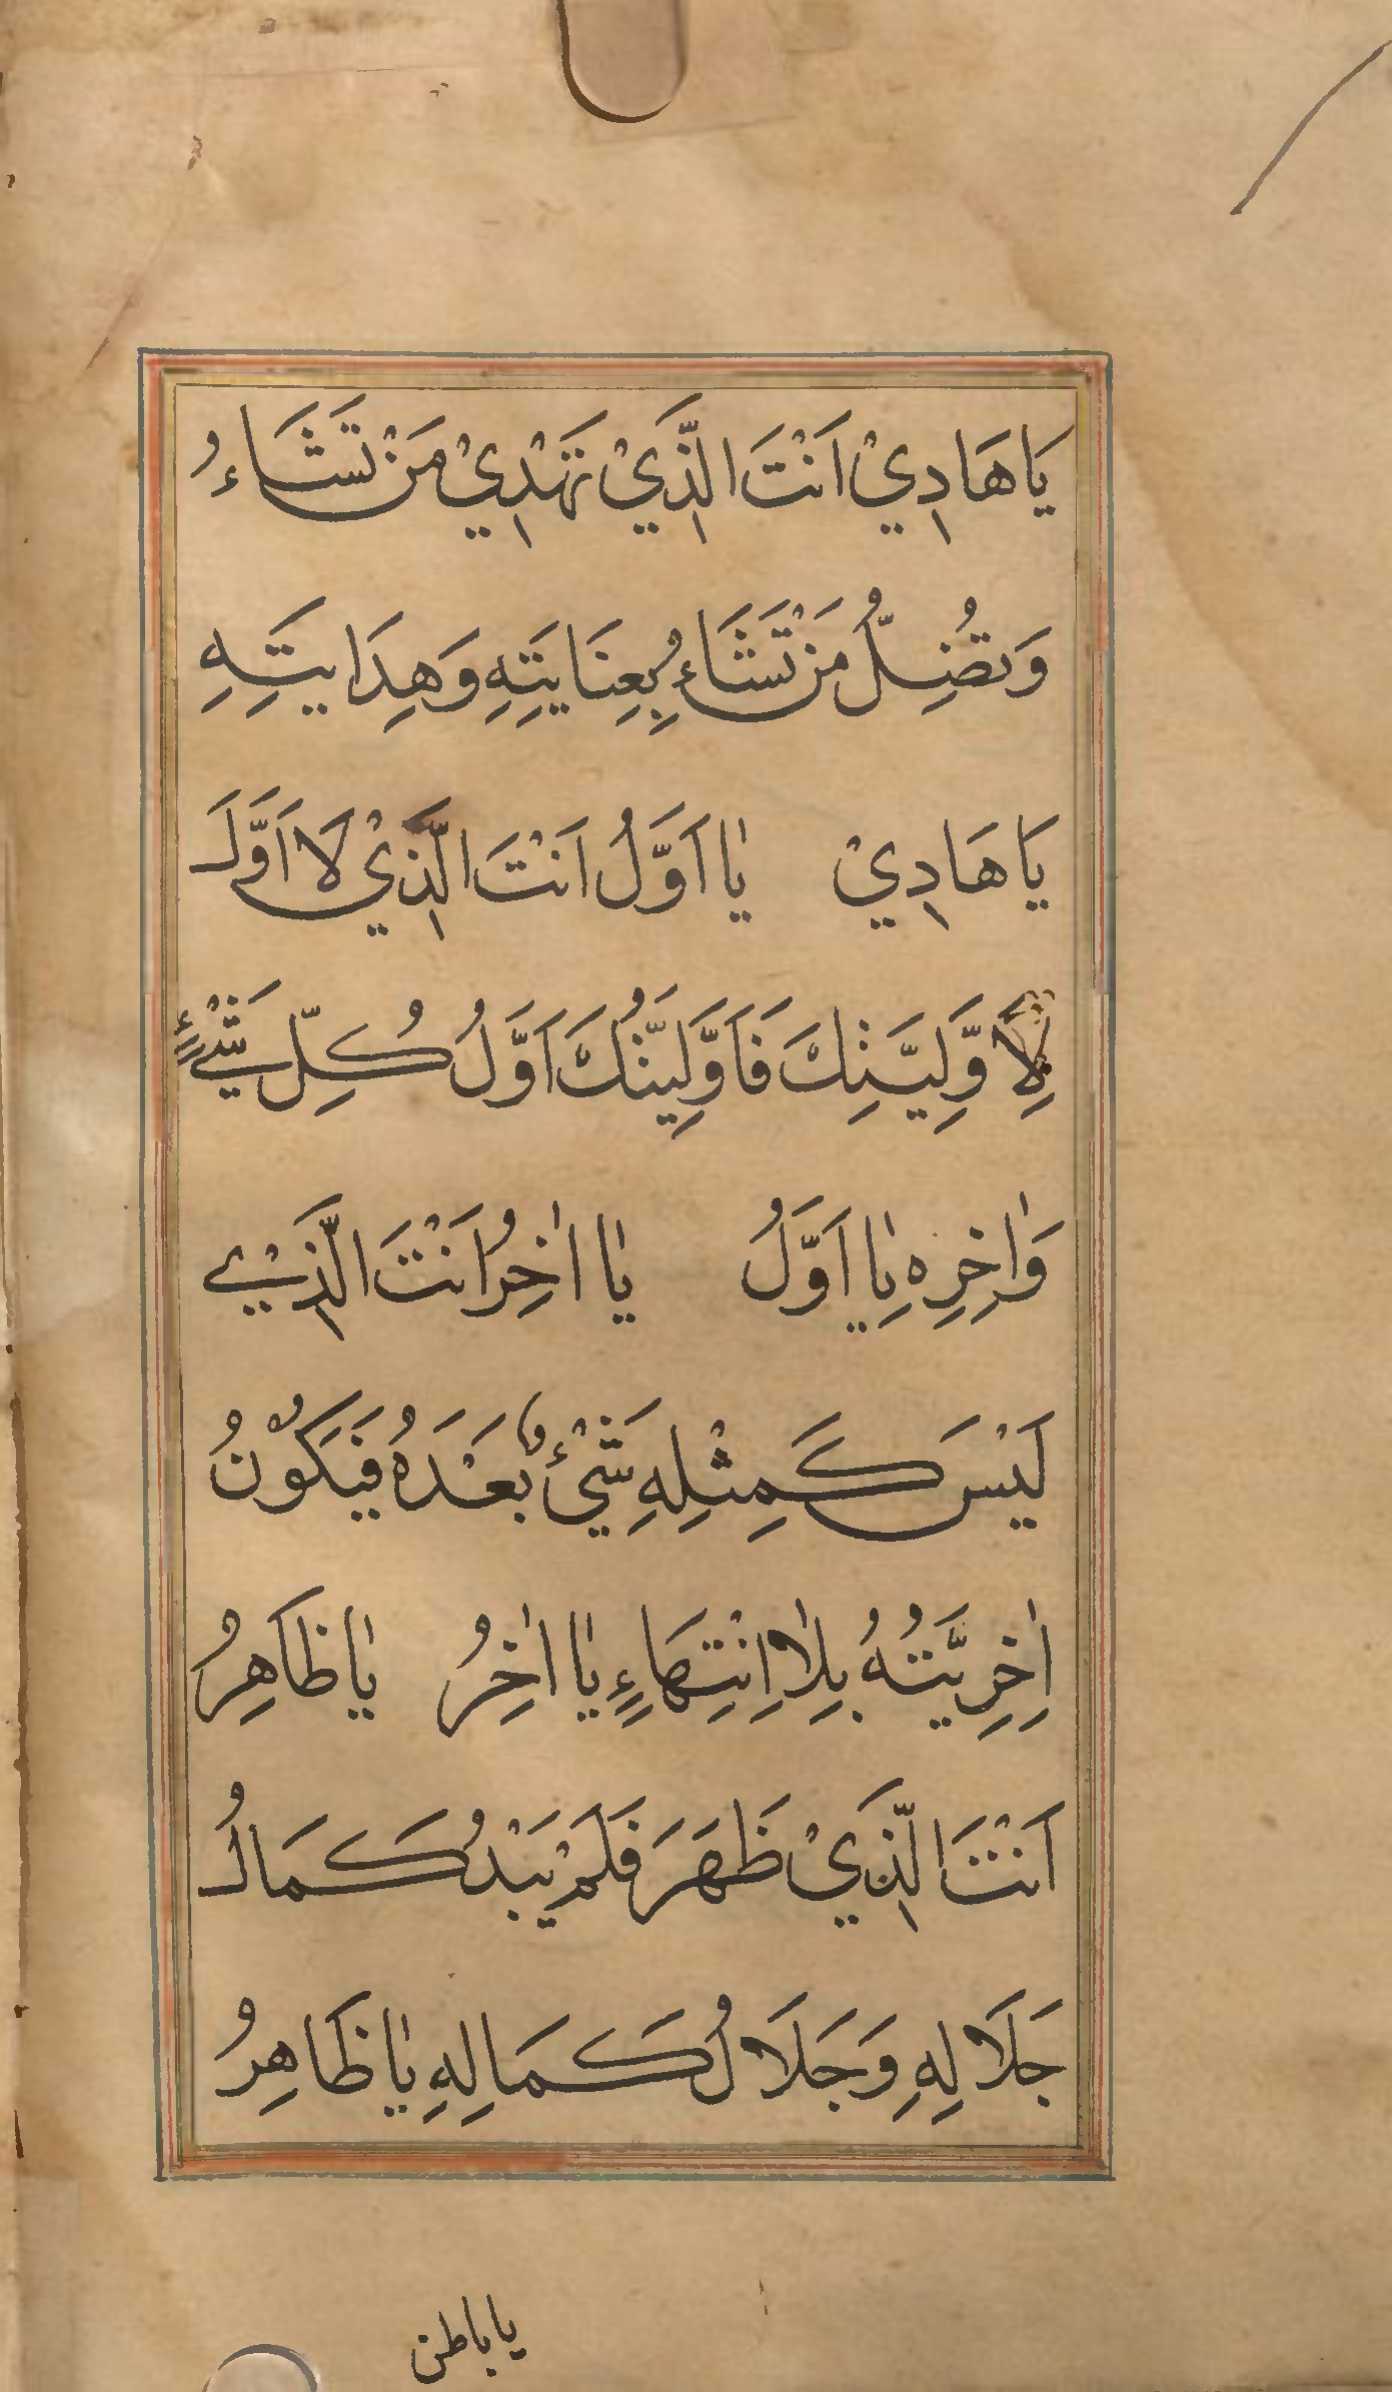 يَا هَادِيْ اَنْتَ الَّذِيْ تَهْدِيْ مَنْ تَشَاءُ
وَتُضِلُّ مَنْ تَشَاءُ بِعِنَايَتِهِ وَهِدَايَتِهِ
يَا هَادِيْ يٰا اَوَّلُ اَنْتَ الَّذِيْ لَا اَوَّلَ
لِاَوَّلِيَّتِكَ فَاَوَّلِيَّتُكَ اَوَّلُ كُلِّ شَيْءٍ
وَاٰخِرِهِ يٰا اَوَّلُ يٰا اٰخِرُ اَنْتَ الَّذِيْ
لَيْسَ كَمِثْلِهِ شَيْءٌ بَعْدَهُ فَيَكُوْنُ
اٰخِرِيَّتُهُ بِلٰا اِنْتِهَاءٍ يٰا اٰخِرُ يٰا ظَاهِرُ
اَنْتَ الَّذِيْ ظَهَرَ فَلَمْ يَبْدُ كَمَالُ
جَلَالِهِ وَجَلَالُ كَمَالِهِ يٰا ظَاهِرُ
يا باطن